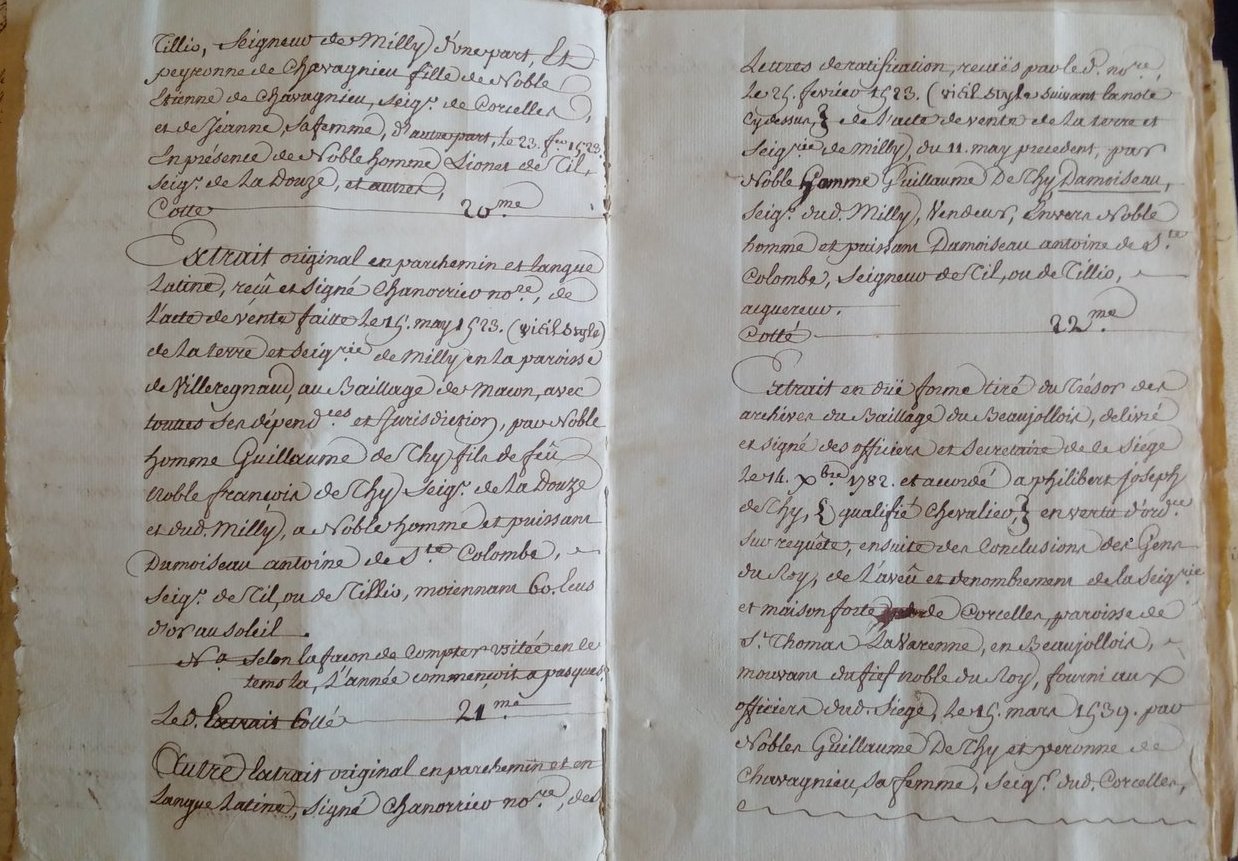 Tillio, Seigneur de Milly, d'vne part, Et
peyronne de Chavagnieu fille de Noble
Etienne de Chavagnieu, Seigr. de Corcelles,
et de Jeanne, Sa femme, d'autre part, Le 23. fer 1523.
En présence de Noble homme Lionet de Til,
Seigr. de La Douze, et autres,
Cotte 20me
Extrait original en parchemin et langue
Latine, reçû et Signé Chanorrier nore, de
L'acte de vente faitte Le 15. may 1523. (vieil Style)
de La terre et Seigrie de Milly en La paroisse
de Villeregnaud, au Baillage de Macon, avec
touttes Ses dépendces et Jurisdiction, par Noble
homme Guillaume de Thy fils de feû
Noble françois de Thy Seigr. de La Douze
et dud. Milly, a Noble homme et puissant
Damoiseau antoine de Ste Colombe,
Seigr. de Til, ou de Tillio, moiennant 60. Ecus
d'or au Soleil.
Na Selon la façon de Compter usitée en Ce
tems la, L'année commençoit a pasques
Le d. Extrait Cotté 21me
Autre Extrait original en parchemin et en
Langue Latine, Signé Chanorrier nore, des
Lettres de ratification, reçuës par le d. nore,
Le 25. fevrier 1523. (vieil Style Suivant la note
Cydessus, } de L'acte de vente de La terre et
Seigrie de Milly, du 11. may precedent, par
Noble homme Guillaume De Thy Damoiseau,
Seigr. dud. Milly, Vendeur, Envers Noble
homme et puissant Damoiseau antoine de Ste
Colombe, Seigneur de Til, ou de Tillio,
acquereur.
Cotté 22me
Extrait en düe forme tiré du Trésor des
archives du Baillage du Beaujollois, délivré
et Signé des officiers et Secretaire de Ce Siége
Le 14. Xbre 1782. et accordé a philibert Joseph
de Thy, { qualifié Chevalier, } en vertu d'ordce
Sur requête, ensuite des Conclusions des Gens
du Roy, de L'aveû et denombrement de la Seigrie
et maison forte de Corcelles, paroisse de
St Thomas La Varenne, en Beaujollois,
mouvant du fief noble du Roy, fourni aux
officiers dud. Siége, Le 15. mars 1539. par
Nobles Guillaume De Thy et peronne de
Chavagnieu, Sa femme, Seigr. dud. Corcelles,